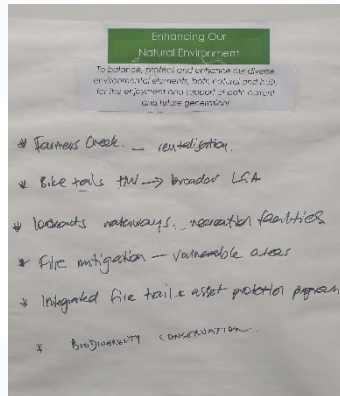 Enhancing Our
Natural Environment
To balance, protect and enhance our diverse
environmental elements, both natural and built,
for the enjoyment and support of both current
and future generations
* Farmers Creek. - revitalisation.
* Bike trails MW → broader LGA
* lookouts waterways. - recreation facilities
* Fire mitigation - vulnerable areas
* Integrated fire trail & asset protection program
* BIODIVERSITY CONSERVATION.